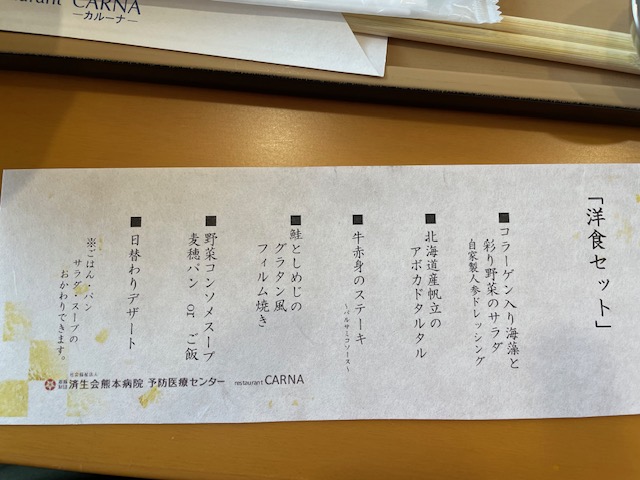 restaurant CARNA
―カルーナ―
「洋食セット」
■コラーゲン入り海藻と
彩り野菜のサラダ
自家製人参ドレッシング
■北海道産帆立の
アボカドタルタル
■牛赤身のステーキ
～バルサミコソース～
■鮭としめじの
グラタン風
フィルム焼き
■野菜コンソメスープ
麦穂パン or ご飯
■日替わりデザート
※ごはん・パン
サラダ・スープの
おかわりできます。
社会福祉法人
恩賜財団 済生会熊本病院 予防医療センター restaurant CARNA